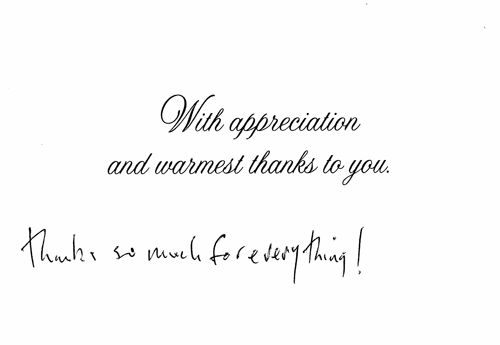 With appreciation
and warmest thanks to you.
thanks so much for everything!